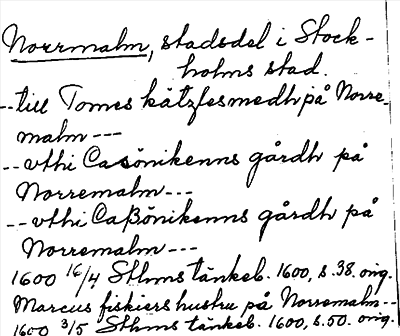 Norrmalm, stadsdel i Stock-
holms stad.
--till Tomes kätzfesmedh på Norre-
malm---
--vthi Casönikenns gårdh på
Norremalm---
--vthi Caßönikenns gårdh på
Norremalm---
1600 16/4 Sthms tänkeb. 1600, s.38. orig.
Marcus fiskiers hustru på Norremalm--
1600 3/5 Sthms tänkeb. 1600, s.50. orig.